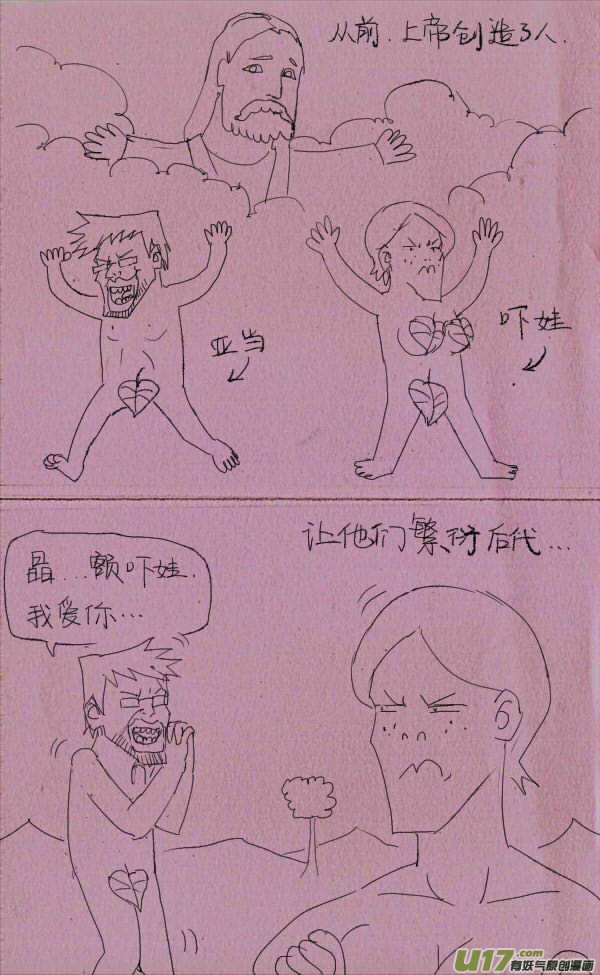 从前、上帝创造了人.
亚当
吓娃
让他们繁衍后代...
晶...额吓娃.
我爱你...
U17.com
有妖气原创漫画